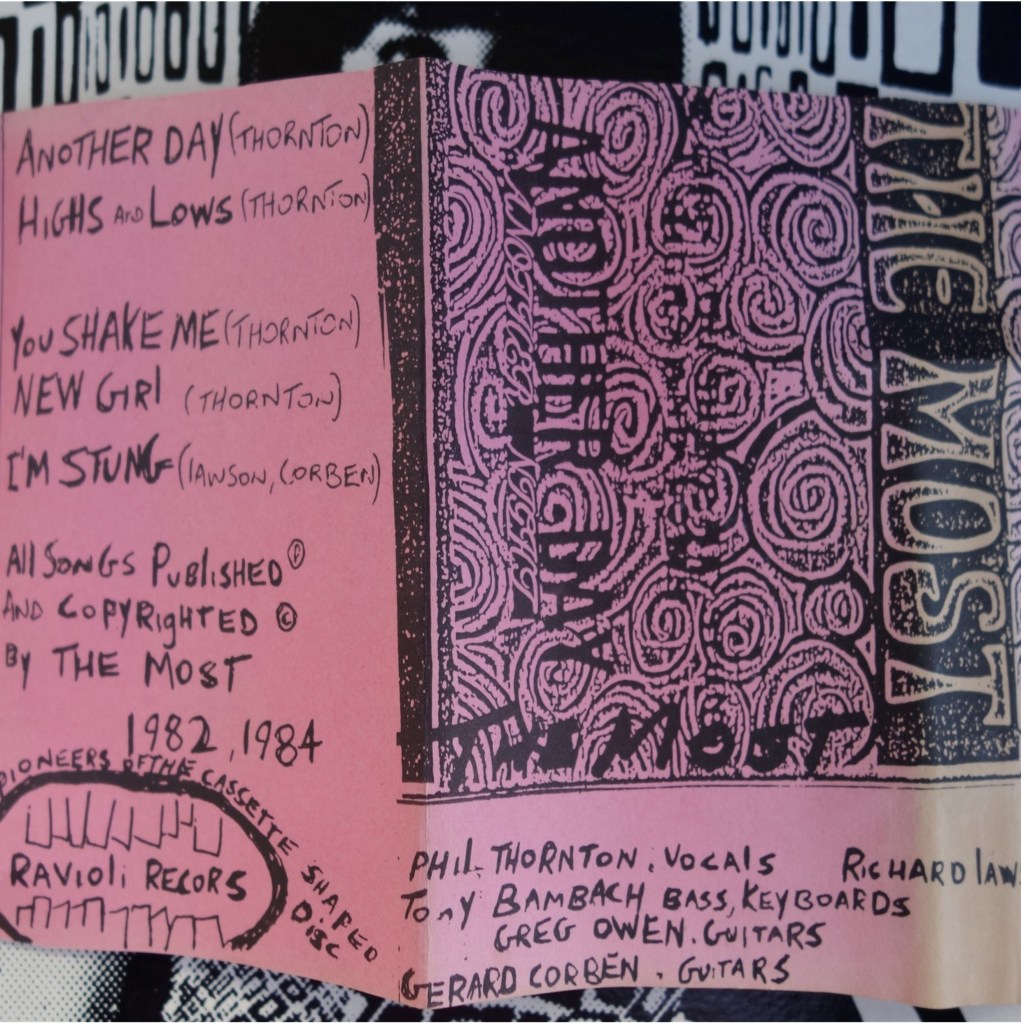 ANOTHER DAY (THORNTON)
HIGHS AND LOWS (THORNTON)
YOU SHAKE ME (THORNTON)
NEW GIRL (THORNTON)
I'M STUNG (LAWSON, CORBEN)
All SONGS PUBLISHED Ⓟ
AND COPYRIGHTED ©
By THE MOST
1982, 1984
PIONEERS OF THE CASSETTE SHAPED DISC
RAVIOLI RECORS
ANOTHER DAY
THE MOST
THE MOST
PHIL THORNTON. VOCALS
RICHARD LAW
TONY BAMBACH BASS, KEYBOARDS
GREG OWEN. GUITARS
GERARD CORBEN. GUITARS